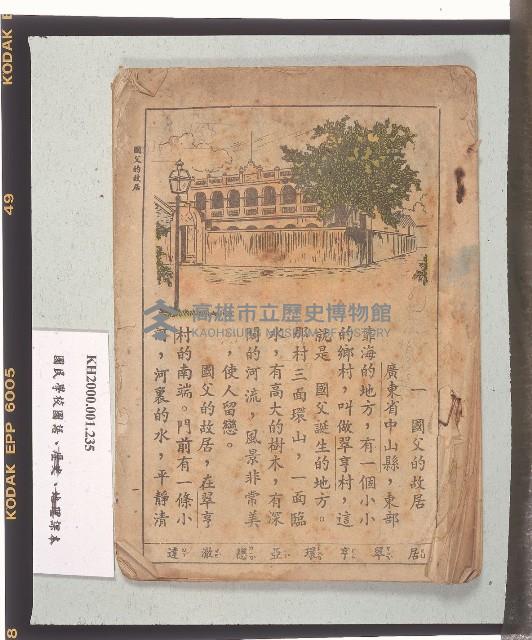 國父的故居
一　國父的故居
廣東省中山縣，東部
靠海的地方，有一個小小
的鄉村，叫做翠亨村，這
就是　國父誕生的地方。
那村三面環山，一面臨
水，有高大的樹木，有深
闊的河流，風景非常美
，使人留戀。
國父的故居，在翠亨
村的南端。門前有一條小
河，河裏的水，平靜清
居 翠 亨 環 亞 戀 澈 達
高雄市立歷史博物館
KAOHSIUNG MUSEUM OF HISTORY
KH2000.001.235
國民學校國語、歷史、地理課本
KODAK EPP 6005
49
KODAK E
8